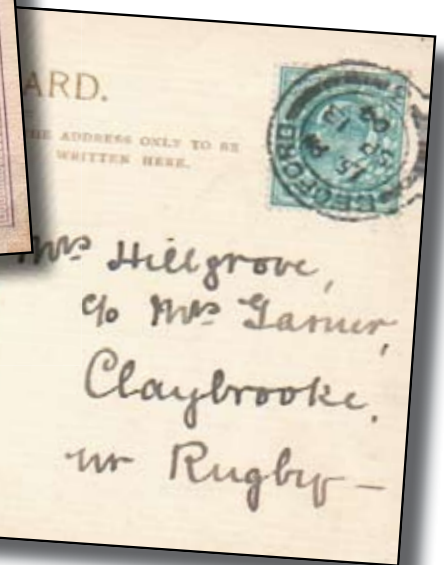 ARD.
HE ADDRESS ONLY TO BE
WRITTEN HERE.
BEDFORD
Mrs Hillgrove,
c/o Mrs Garner,
Claybrooke.
nr Rugby —